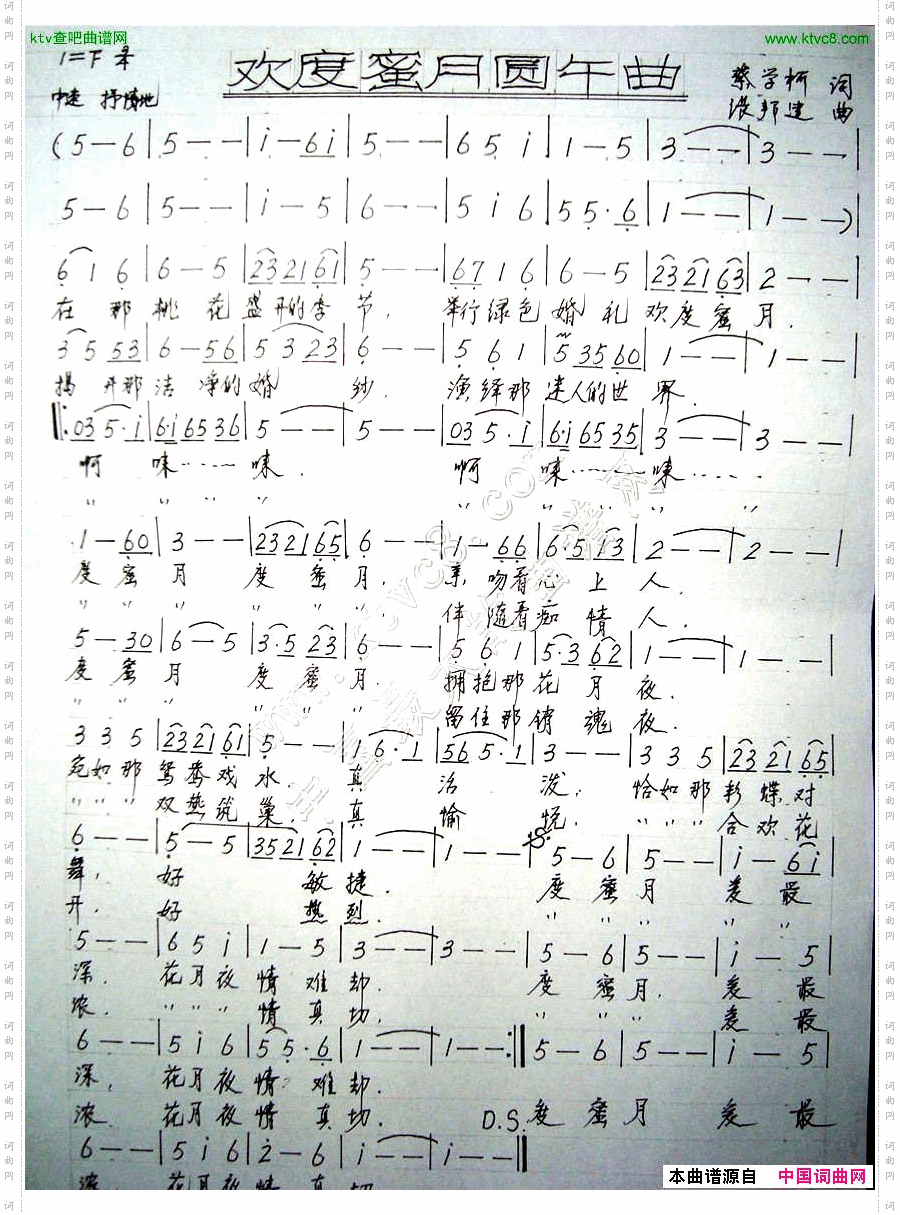 ktv查吧曲谱网
www.ktvc8.com
1=F 3/4
欢度蜜月圆午曲
蔡学柯 词
中速 抒情地
邦建 曲
(5—6|5——|i—6i|5——|65i|1—5|3——|3——|
5—6|5——|i—5|6——|5i6|55·6|1——|1——)
616|6—5|232161|5——|6716|6—5|232163|2——|
在那桃花盛开的季节，举行绿色婚礼欢度蜜月.
3553|6—56|5323|6——|561|53560|1——|1——|
揭开那洁净的婚纱.演绎那迷人的世界.
|:035·i|6·i6536|5——|5——|035·i|6·i6535|3——|3——|
啊 味……味. 啊 味……味…….
" " " " " " " "
1—60|3——|232165|6——|1—66|6·513|2——|2——|
度蜜月 度蜜月.亲吻着心上人.
" " " " " " 伴随着痴情人.
5—30|6—5|3·523|6——|561|5·362|1——|1——|
度蜜月 度蜜月.拥抱那花月夜.
" " " " " " 留住那销魂夜.
335|232161|5——|16·1|565·1|3——|335|232165|
宛如那鸳鸯戏水.真活泼.恰如那彩蝶对
" " " 双燕筑巢.真愉悦." " " 合欢花
6——|5—5|352162|1——|1——|5—6|5——|i—6i|
舞，好敏捷. 度蜜月 爱最
开.好热烈. " " " " 爱最
5——|65i|1—5|3——|3——|5—6|5——|i—5|
深.花月夜情难却. 度蜜月.爱最
浓." " " 情真切. " " " 爱最
6——|5i6|55·6|1——|1——:||5—6|5——|i—5|
深，花月夜情难却.
浓.花月夜情真切. D.S.度蜜月 爱最
6——|5i6|2—6|i——|i——||
浓 花月夜情真切
本曲谱源自 中国词曲网
词曲网